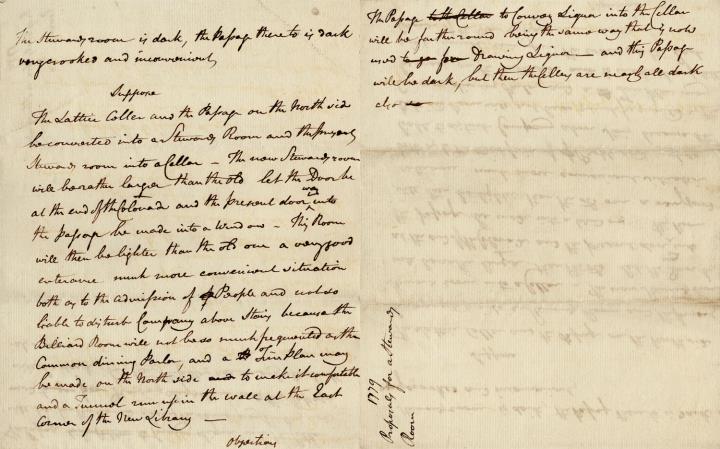 The Stewards room is dark, the Passage thereto is dark
very crooked and inconvenient
Suppose
The Lattice Celler and the Passage on the North side
be converted into a Stewards Room and the present
Stewards room into a Cellar — The new Stewards room
will be rather larger than the old let the Door be
at the end of the Colonad and the present door way into
the Passage be made into a Window — This Room
will then be lighter than the old one a very good
entrance much more convenient situation
both as to the admission of People and not so
liable to disturb Company above Stairs because the
Billiard Room will not be so much frequented as the
Common dining Parlor, and a Fire Place may
be made on the North side to make it comfortable
and a Tunnel run up in the wall at the East
Corner of the New Library —
Objections
The Passage to the Cellar to Convey Liquor into the Cellar
will be farther round being the same way that is now
used to go for Drawing Liquor — and this Passage
will be dark, but then the Cellers are nearly all dark
also
1779
Proposals for a Stewards
Room